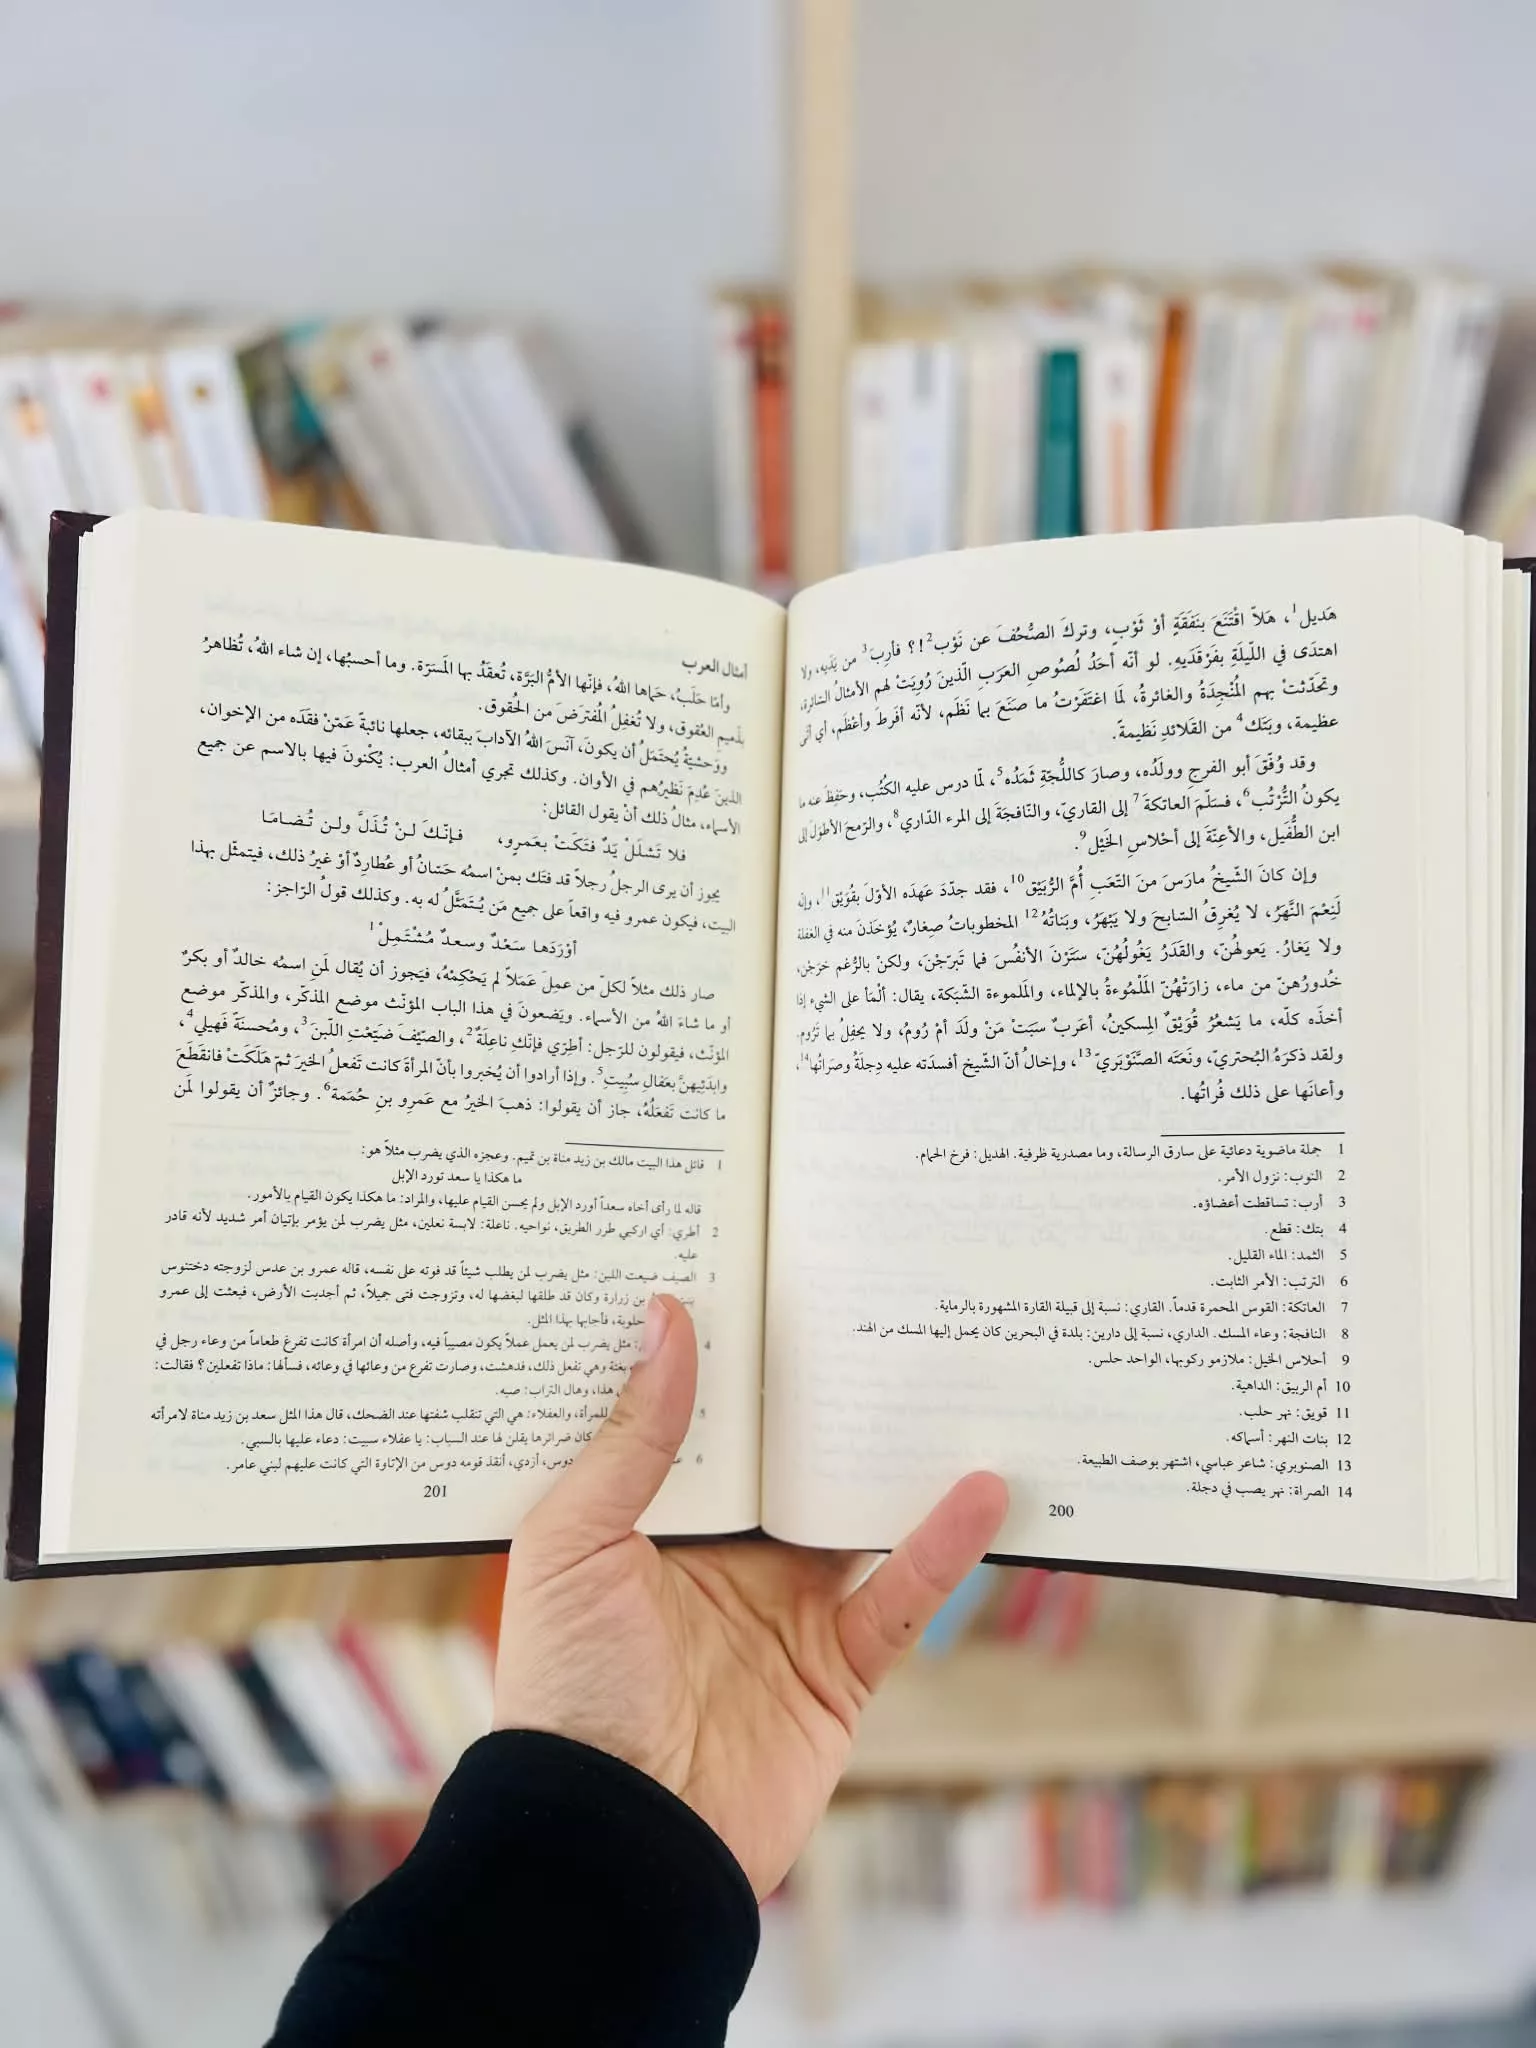 هَديل1، هَلاّ اقْتَنَعَ بنَفَقَةٍ أوْ ثَوْبٍ، وتركَ الصُّحُفَ عن نَوْب2!؟ فأرِبَ3 من يَدَيه، ولا
اهتدَى في اللّيلَةِ بفَرْقَدَيهِ. لو أنّه أحَدُ لُصُوصِ العرَبِ الّذينَ رُوِيَتْ لهم الأمثالُ السّائرة،
وتحَدّثتْ بهم المُنْجِدَةُ والغائرةُ، لَمَا اغتَفَرْتُ ما صنَعَ بما نَظَم، لأنّه أفرَطَ وأعْظَم، أي أتى
عظيمة، وبَتَك4 من القَلائدِ نَظيمةً.
وقد وُفّقَ أبو الفرجِ وولَدُه، وصارَ كاللُّجّةِ ثَمَدُه5، لمّا درس عليه الكتُب، وحَفِظَ عنه ما
يكونُ التُّرْتُب6، فسَلّمَ العاتكةَ7 إلى القاريّ، والنّافجَةَ إلى المرء الدّاري8، والرّمحَ الأطوَلَ إلى
ابن الطُّفَيل، والأعِنّةَ إلى أحْلاسِ الخَيْل9.
وإن كانَ الشّيخُ مارَسَ منَ التّعَبِ أُمَّ الرُّبَيْق10، فقد جدّدَ عَهدَه الأوّلَ بقُوَيْق11، وإنه
لَنِعْمَ النَّهَرُ، لا يُغرِقُ السّابحَ ولا يَبْهَرُ، وبَناتُهُ12 المخطوباتُ صِغارٌ، يُؤخَذنَ منه في الغفلة
ولا يَغارُ. يَعولهُنّ، والقدَرُ يَغُولُهُنّ، سَتَرْنَ الأنفُسَ فما تَبرّجْنَ، ولكنْ بالرُّغم خرَجْن،
خُدورُهنّ من ماء، زارَتْهُنّ المَلْمُوءةُ بالإلماء، والمَلموءة الشّبَكة، يقال: ألْمَأ على الشيء إذا
أخذَه كلّه، ما يَشعُرُ قُوَيْقٌ المِسكينُ، أعَربٌ سبَتْ مَنْ ولَدَ أمْ رُومُ، ولا يحفِلُ بما تَرُوم.
ولقد ذكرَهُ البُحتريّ، ونَعَتَه الصَّنَوْبَريّ13، وإخالُ أنّ الشّيخ أفسدَته عليه دِجلَةُ وصَراتُها14،
وأعانَها على ذلك فُراتُها.
1 جملة ماضوية دعائية على سارق الرسالة، وما مصدرية ظرفية. الهديل: فرخ الحمام.
2 النوب: نزول الأمر.
3 أرب: تساقطت أعضاؤه.
4 بتك: قطع.
5 الثمد: الماء القليل.
6 الترتب: الأمر الثابت.
7 العاتكة: القوس المحمرة قدماً. القاري: نسبة إلى قبيلة القارة المشهورة بالرماية.
8 النافجة: وعاء المسك. الداري، نسبة إلى دارين: بلدة في البحرين كان يحمل إليها المسك من الهند.
9 أحلاس الخيل: ملازمو ركوبها، الواحد حلس.
10 أم الربيق: الداهية.
11 قويق: نهر حلب.
12 بنات النهر: أسماكه.
13 الصنوبري: شاعر عباسي، اشتهر بوصف الطبيعة.
14 الصراة: نهر يصب في دجلة.
200
أمثال العرب
وأمّا حَلَبُ، حَماها اللهُ، فإنّها الأمُّ البَرّة، تُعقَدُ بها المَسَرّة. وما أحسبُها، إن شاء اللهُ، تُظاهرُ
بذَميمِ العُقوق، ولا تُغفِلُ المُفترَضَ من الحُقوق.
ووَحشيّةُ يُحتَمَلُ أن يكونَ، آنَسَ اللهُ الآدابَ ببقائه، جعلها نائبةً عَمّنْ فقَدَه من الإخوان،
الذينَ عُدِمَ نَظيرُهم في الأوان. وكذلك تجري أمثالُ العرب: يُكْنونَ فيها بالاسم عن جميع
الأسماء، مثالُ ذلك أنْ يقول القائل:
فلا تَشلَلْ يَدٌ فتَكَتْ بعَمرٍو، فإنّكَ لنْ تُذَلَّ ولن تُضامَا
يجوز أن يرى الرجلُ رجلاً قد فتَك بمنْ اسمُه حَسّانُ أو عُطارِدٌ أوْ غيرُ ذلك، فيتمثّل بهذا
البيت، فيكون عمرو فيه واقعاً على جميع مَن يُتَمَثَّلُ له به. وكذلك قولُ الرّاجز:
أوْرَدَها سَعْدٌ وسعدٌ مُشْتَمِلْ1
صار ذلك مثلاً لكلّ من عمِلَ عَمَلاً لم يَحْكِمْهُ، فيَجوز أن يُقال لمَنِ اسمُه خالدٌ أو بكرٌ
أو ما شاءَ اللهُ من الأسماء. ويَضعونَ في هذا الباب المؤنّث موضع المذكّر، والمذكّر موضع
المؤنّث، فيقولون للرّجل: أطِرّي فإنّكِ ناعِلَةٌ2، والصّيّفَ ضَيّعْتِ اللّبنَ3، ومُحسنَةٌ فَهيلي4،
وابدَئِيهنَّ بعَفالِ سُبِيتِ5. وإذا أرادوا أن يُخبروا بأنّ المرأة كانت تَفعلُ الخيرَ ثمّ هَلَكَتْ فانقَطَعَ
ما كانت تَفعَلُهُ، جاز أن يقولوا: ذهبَ الخيرُ مع عَمرِو بنِ حُمَمة6. وجائزٌ أن يقولوا لمَن
1 قائل هذا البيت مالك بن زيد مناة بن تميم. وعجزه الذي يضرب مثلاً هو:
ما هكذا يا سعد تورد الإبل
قاله لما رأى أخاه سعداً أورد الإبل ولم يحسن القيام عليها، والمراد: ما هكذا يكون القيام بالأمور.
2 أطري: أي اركبي طرر الطريق، نواحيه. ناعلة: لابسة نعلين، مثل يضرب لمن يؤمر بإتيان أمر شديد لأنه قادر
عليه.
3 الصيف ضيعت اللبن: مثل يضرب لمن يطلب شيئاً قد فوته على نفسه، قاله عمرو بن عدس لزوجته دختنوس
بن زرارة وكان قد طلقها لبغضها له، وتزوجت فتى جميلاً، ثم أجدبت الأرض، فبعثت إلى عمرو
حلوبة، فأجابها بهذا المثل.
4 مثل يضرب لمن يعمل عملاً يكون مصيباً فيه، وأصله أن امرأة كانت تفرغ طعاماً من وعاء رجل في
بغتة وهي تفعل ذلك، فدهشت، وصارت تفرغ من وعائها في وعائه، فسألها: ماذا تفعلين؟ فقالت:
هذا، وهال التراب: صبه.
5 للمرأة، والعفلاء: هي التي تنقلب شفتها عند الضحك، قال هذا المثل سعد بن زيد مناة لامرأته
كان ضرائرها يقلن لها عند السباب: يا عفلاء سبيت: دعاء عليها بالسبي.
6 دوس، أزدي، أنقذ قومه دوس من الإتاوة التي كانت عليهم لبني عامر.
201